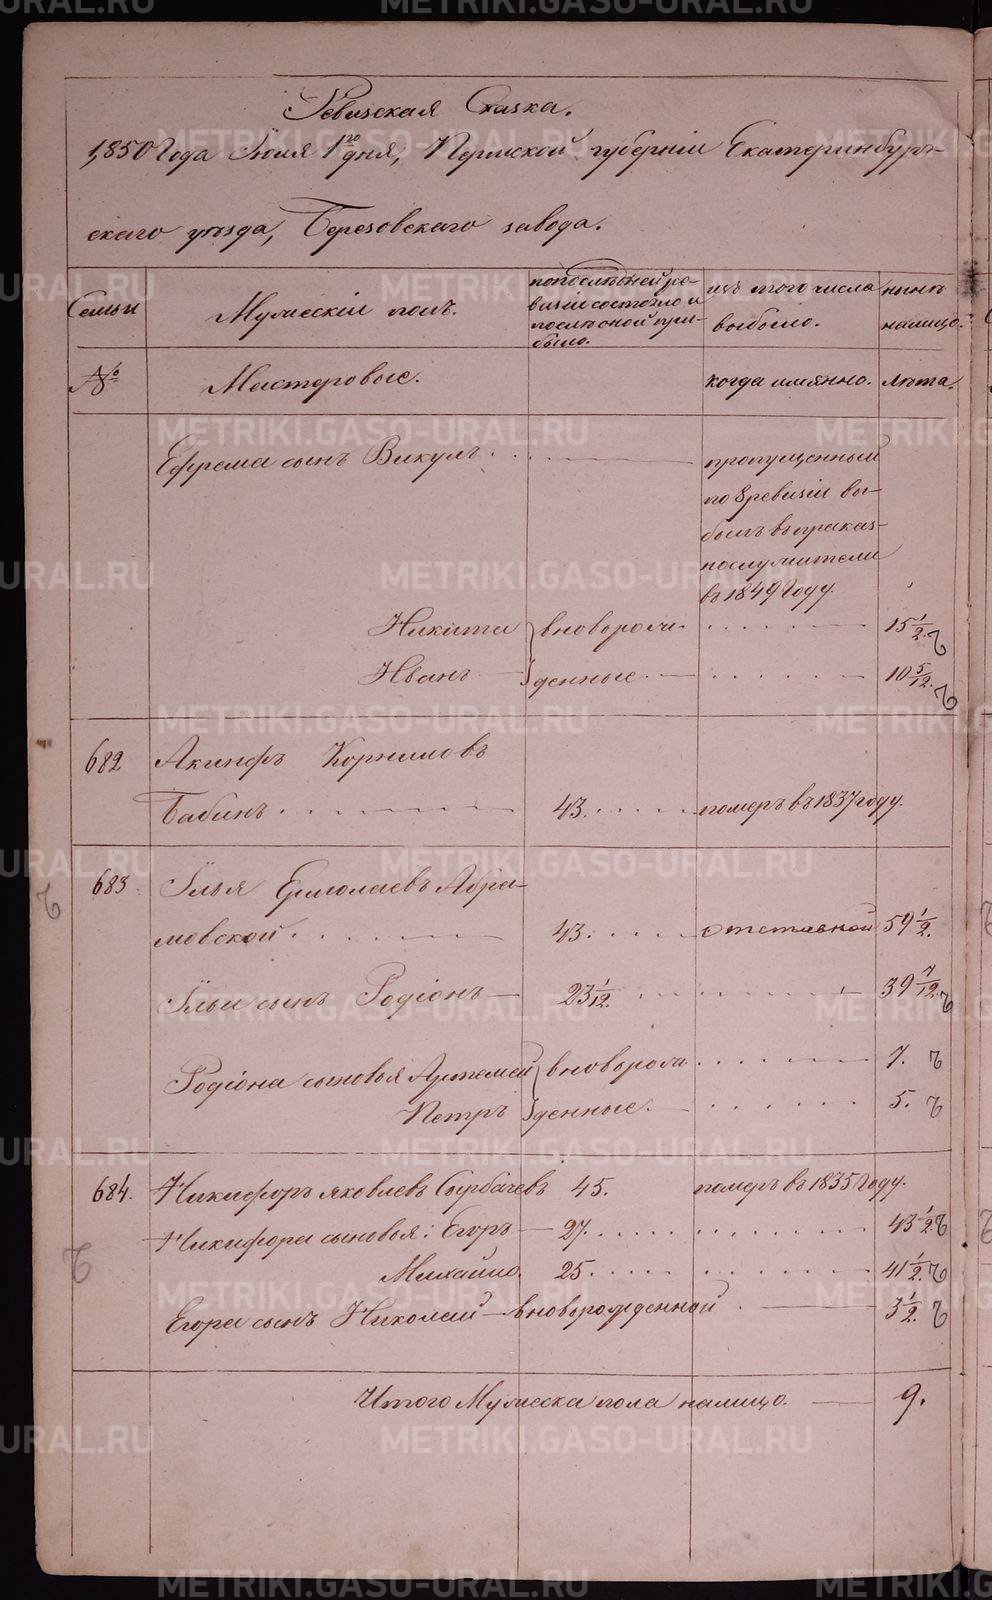 Ревизская Сказка.
1850 Года Іюля 1го дня, Пермской губерніи Екатеринбург-
скаго уѣзда, Березовскаго завода.
Семьи
Мужескій полъ.
по послѣдней ре-
визіи состояло и
послѣ оной при-
было.
изъ того числа
выбыло.
нынѣ
налицо.
№
Мастеровые.
когда имянно.
лѣта.
Ефрема сынъ Викулъ
пропущенный
по 8 ревизіи вы-
былъ в приказ-
послужители
въ 1849 Году.
Никита } вноворож- 15 1/2.
Иванъ } денные. 10 5/12.
682 Акинфъ Корниловъ
Бабинъ 43. померъ въ 1837 году.
683 Ілья Ермолаевъ Абра-
мовской 43. отставной 59 1/2.
Ільи сынъ Родіонъ 23 1/12. 39 7/12.
Родіона сыновья Артемей } вноворож- 7.
Петръ } денные. 5.
684. Никифоръ яковлевъ Горбачевъ 45. померъ въ 1835 Году.
Никифора сыновья: Егоръ 27. 43 1/2.
Михайло. 25. 41 1/2.
Егора сынъ Николай новорожденной 3 1/2.
Итого Мужеска пола налицо. 9.
METRIKI.GASO-URAL.RU